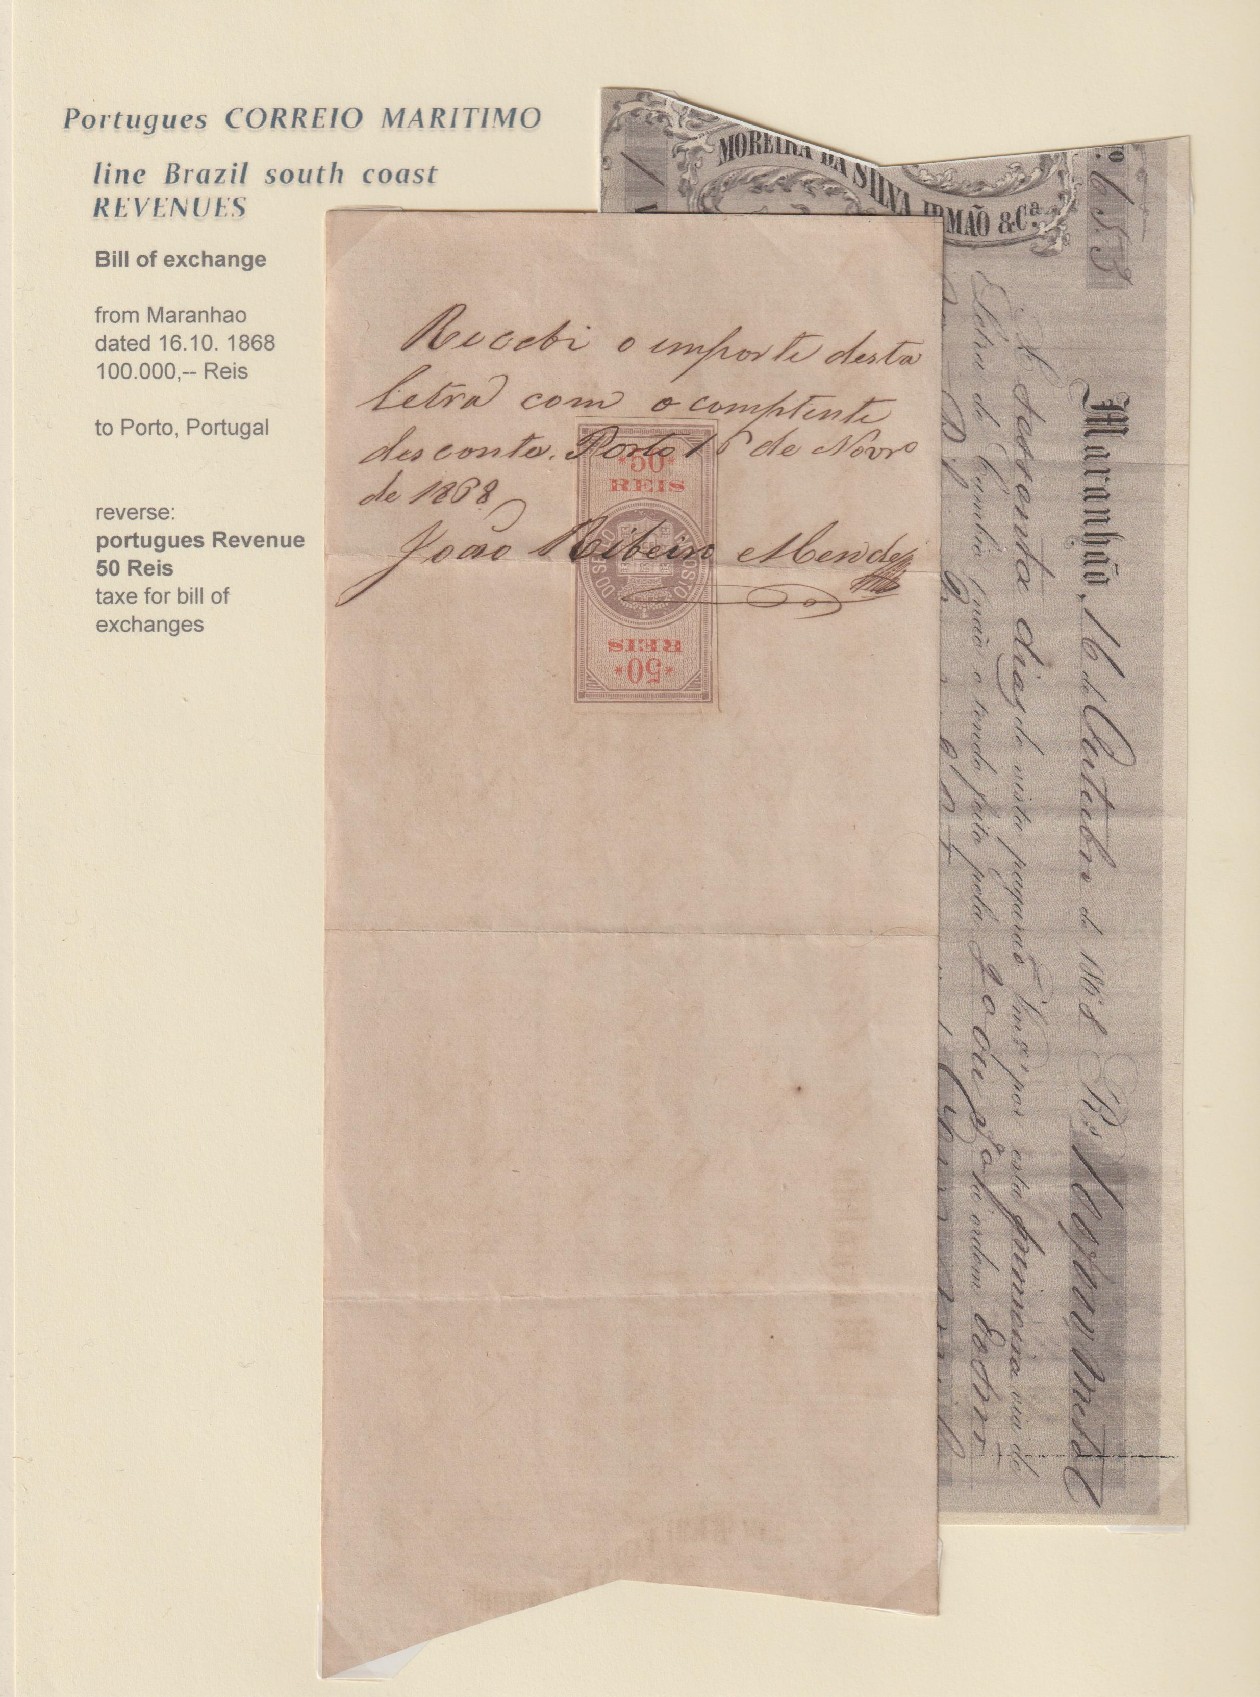 Portugues CORREIO MARITIMO
line Brazil south coast
REVENUES
Bill of exchange
from Maranhao
dated 16.10. 1868
100.000,-- Reis
to Porto, Portugal
reverse:
portugues Revenue
50 Reis
taxe for bill of
exchanges
Recebi o importe desta
letra com o comptente
desconto. Porto 16 de Novro
de 1868
João Ribeiro Mendes
*50*
REIS
DO SELLO
REIS
*50*
MOREIRA DA SILVA IRMÃO & Cª
653
Maranhão, 16 de Outubro de 1868 Rs 100$000 Mestal
A sessenta dias de vista pagarão Vmces por esta primeira via de
Letra de Cambio (não o tendo feito pela